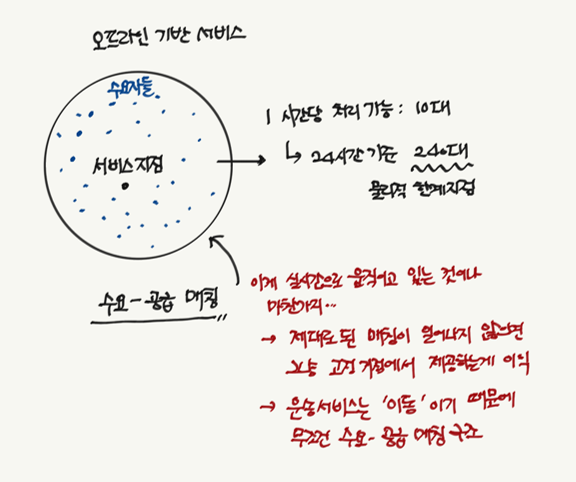 오프라인 기반 서비스
수요자들
서비스지점
1 시간당 처리 가능 : 10대
↳ 24시간 기준 240대
물리적 한계지점
수요-공급 매칭
이게 실시간으로 움직이고 있는 것이나
마찬가지...
→ 제대로 된 매칭이 일어나지 않으면
그냥 고정거점에서 제공하는게 이익
→ 운송서비스는 '이동' 이기 때문에
무조건 수요-공급 매칭 구조